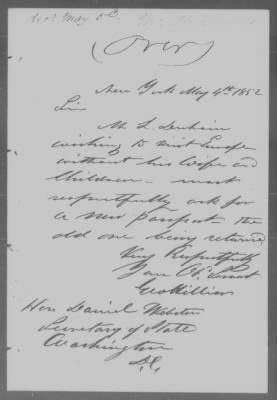 Recd May 5th
(Over)
New York May 4th 1852
Sir
M L Denham
wishing to visit Europe
without his Wife and
Children - most
respectfully ask for
a new Passport the
old one being returned
Very Respectfully
Your Obt Servant
Geo Millin
Hon Daniel Webster
Secretary of State
Washington
D.C.